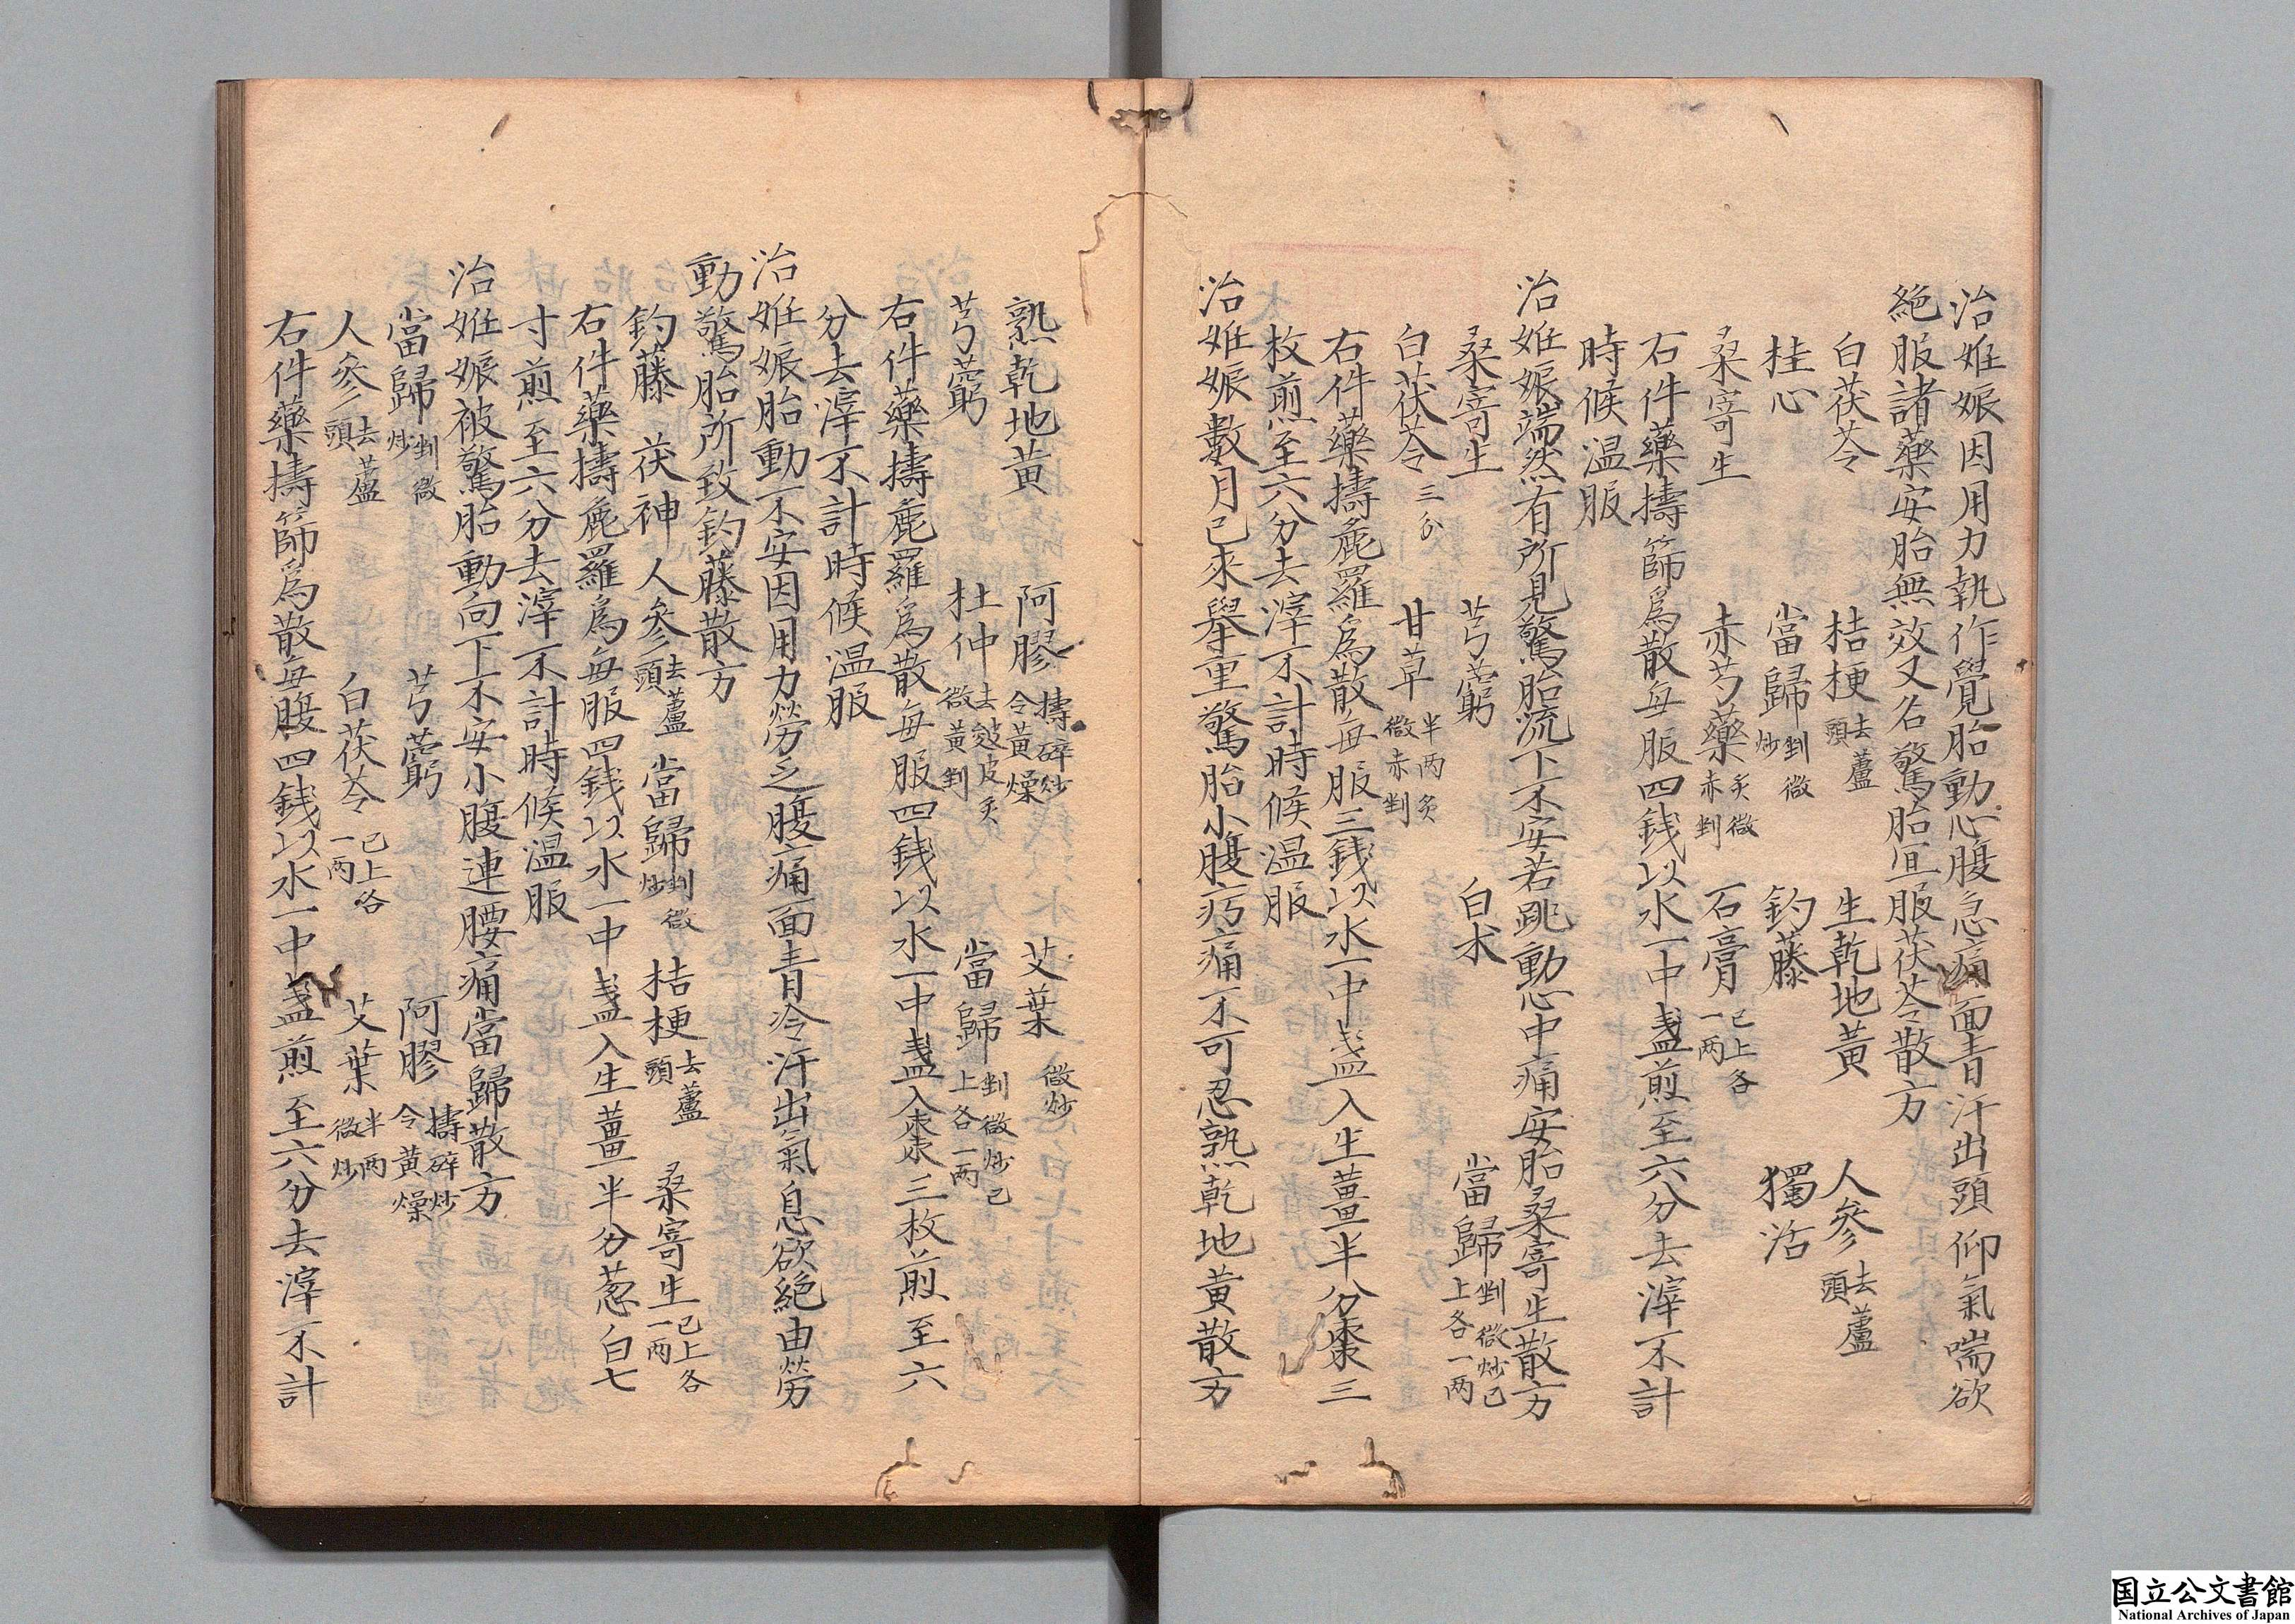 治妊娠因用力執作覺胎動心腹急痛面青汗出頭仰氣喘欲
絶服諸藥安胎無效又名驚胎宜服茯苓散方
白茯苓 桔梗去蘆頭 生乾地黃 人參去蘆頭
桂心 當歸剉微炒 釣藤 獨活
桑寄生 赤芍藥炙微赤剉 石膏已上各一两
右件藥擣篩爲散每服四錢以水一中盞煎至六分去滓不計
時候温服
治妊娠端然有所見驚胎流下不安若跳動心中痛安胎桑寄生散方
桑寄生 芎藭 白术 當歸剉微炒已上各一两
白茯苓三分 甘草半两炙微赤剉
右件藥擣麁羅爲散每服三錢以水一中盞入生薑半分棗三
枚煎至六分去滓不計時候温服
治妊娠數月已來舉重驚胎小腹㽲痛不可忍熟乾地黃散方
熟乾地黃 阿膠擣碎炒令黃燥 艾葉微炒
芎藭 杜仲去皴皮炙微黃剉 當歸剉微炒已上各一两
右件藥擣麁羅爲散每服四錢以水一中盞入棗三枚煎至六
分去滓不計時候温服
治妊娠胎動不安因用力勞乏腹痛面青冷汗出氣息欲絶由勞
動驚胎所致釣藤散方
釣藤 茯神 人參去蘆頭 當歸剉微炒 桔梗去蘆頭 桑寄生已上各一两
右件藥擣麁羅爲每服四錢以水一中盞入生薑半分葱白七
寸煎至六分去滓不計時候温服
治妊娠被驚胎動向下不安小腹連腰痛當歸散方
當歸剉微炒 芎藭 阿膠擣碎炒令黃燥
人參去蘆頭 白茯苓已上各一两 艾葉半两微炒
右件藥擣篩爲散每服四錢以水一中盞煎至六分去滓不計
国立公文書館
National Archives of Japan